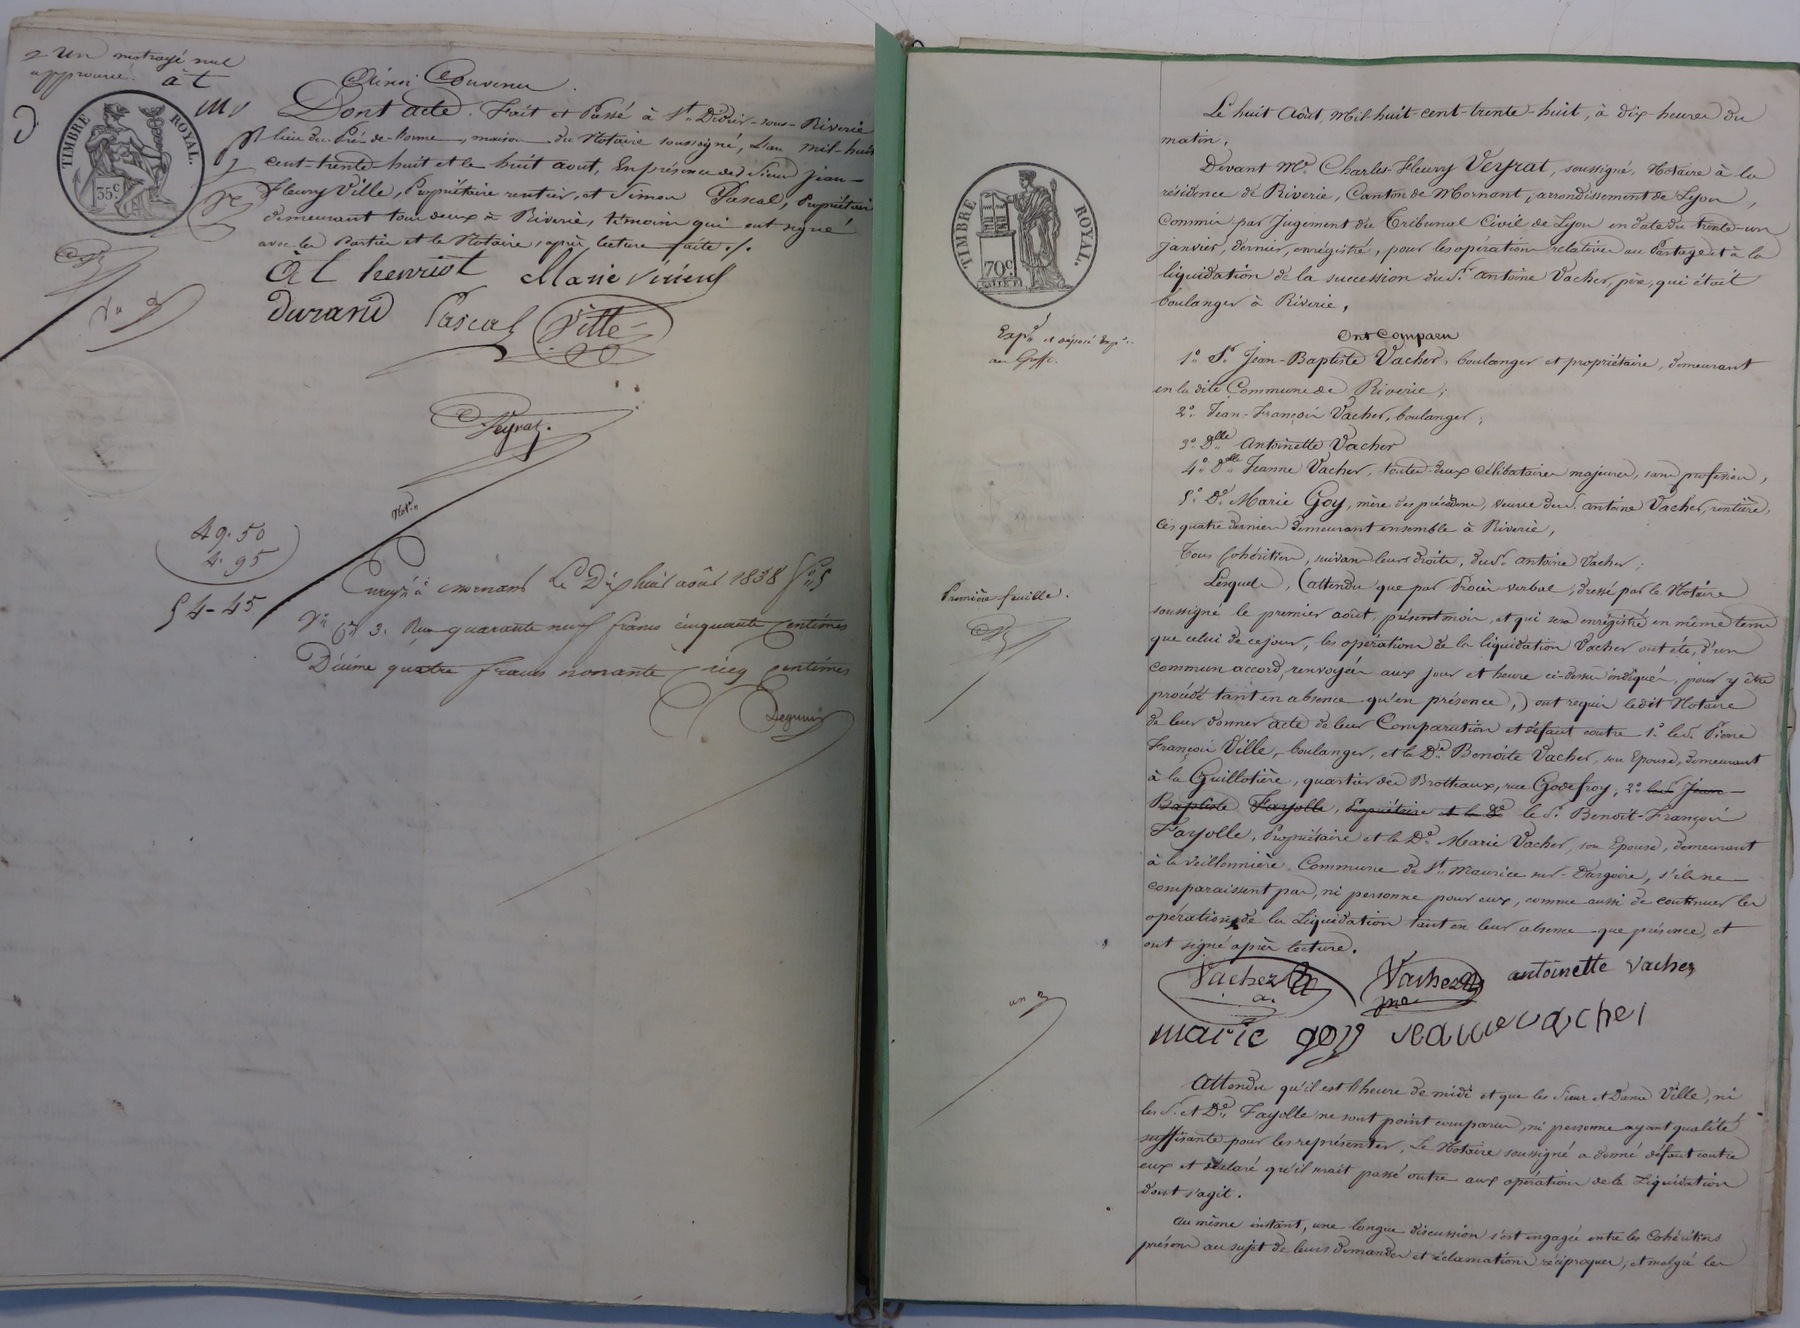 Un mot rayé nul
approuvé. a t
m v
TIMBRE ROYAL.
35c
Ainsi Convenu.
Dont acte. Fait et Passé à St. Didier-sous-Riverie
lieu du Pré-de-l'orme, maison du Notaire soussigné, L'an mil-huit
cent-trente huit et le huit aout, En présence des Sieurs Jean-
Fleury Ville, Propriétaire rentier, et Simon Pascal, Propriétaire
demeurant tous deux à Riverie, témoins qui ont signé
avec les Parties et le Notaire, après lecture faite ./.
At henriot Marie
Durand Pascal Ville
Veyrat.
Not.re
49.50
4.95
54-45
Enregtré à mornant Le Dix huit août 1838 fo
Vo Ce 3. Reçu quarante neuf francs cinquante Centimes
Décime quatre francs nonante cinq Centimes
TIMBRE ROYAL.
70c.
Le huit Août, Mil huit-cent-trente-huit, à dix heures du
matin.
Devant Me. Charles-Fleury Veyrat, soussigné, Notaire à la
résidence de Riverie, Canton de Mornant, arrondissement de Lyon,
Commis par Jugement du Tribunal Civil de Lyon en date du trente-un
janvier, dernier, enregistré, pour les opérations relatives au Partage et à la
liquidation de la succession du Sr. Antoine Vacher, père, qui était
boulanger à Riverie,
Ont Comparu
1o. Sr. Jean-Baptiste Vacher, boulanger et propriétaire, demeurant
en la dite Commune de Riverie;
2o. Jean-François Vacher, boulanger;
3o. Dlle Antoinette Vacher
4o. Dlle Jeanne Vacher, toutes-deux célibataires majeures, sans profession,
5o. De. Marie Goy, mère des précédens, veuve du S. Antoine Vacher, rentière,
Ces quatre derniers demeurant ensemble à Riverie,
Tous Cohéritiers, suivant leurs droits, du Sr. Antoine Vacher;
Lesquels, (attendu que par Procès verbal, dressé par le Notaire
soussigné le premier août, présent mois, et qui sera enregistré en même tems
que celui de ce jour, les opérations de la liquidation Vacher ont été, d'un
commun accord, renvoyées aux jour et heure ci-dessus indiqués, pour y être
procédé tant en absence qu'en présence,) ont requis ledit Notaire
de leur donner acte de leur Comparution et défaut contre 1o. le S. Pierre
François Ville, boulanger, et la De. Benoite Vacher, son Epouse, demeurant
à la Guillotière, quartier des Brotteaux, rue Godefroy, 2o. le S. Jean-
Baptiste Fayolle, Propriétaire et la De le S. Benoit-François
Fayolle, Propriétaire et la De. Marie Vacher, son Epouse, demeurant
à la Veillonnière, Commune de St. Maurice sur-Dargoire, s'ils ne
comparaissent pas, ni personne pour eux, comme aussi de continuer les
opérations de la Liquidation tant en leur absence que présence, et
ont signé après lecture.
Expn. et déposé Exp.
au Greffe.
Première feuille.
Vachez Vachez antoinette vachez
jne
marie goy Jeanne vacher
Attendu qu'il est l'heure de midi et que les Sieur et Dame Ville, ni
les S. et De. Fayolle ne sont point comparus, ni personne ayant qualité
suffisante pour les représenter, Le Notaire soussigné a donné défaut contre
eux et déclaré qu'il serait passé outre aux opérations de la Liquidation
dont s'agit.
Au même instant, une longue discussion s'est engagée entre les Cohéritiers
présens au sujet de leurs demandes et réclamations réciproques, et malgré les